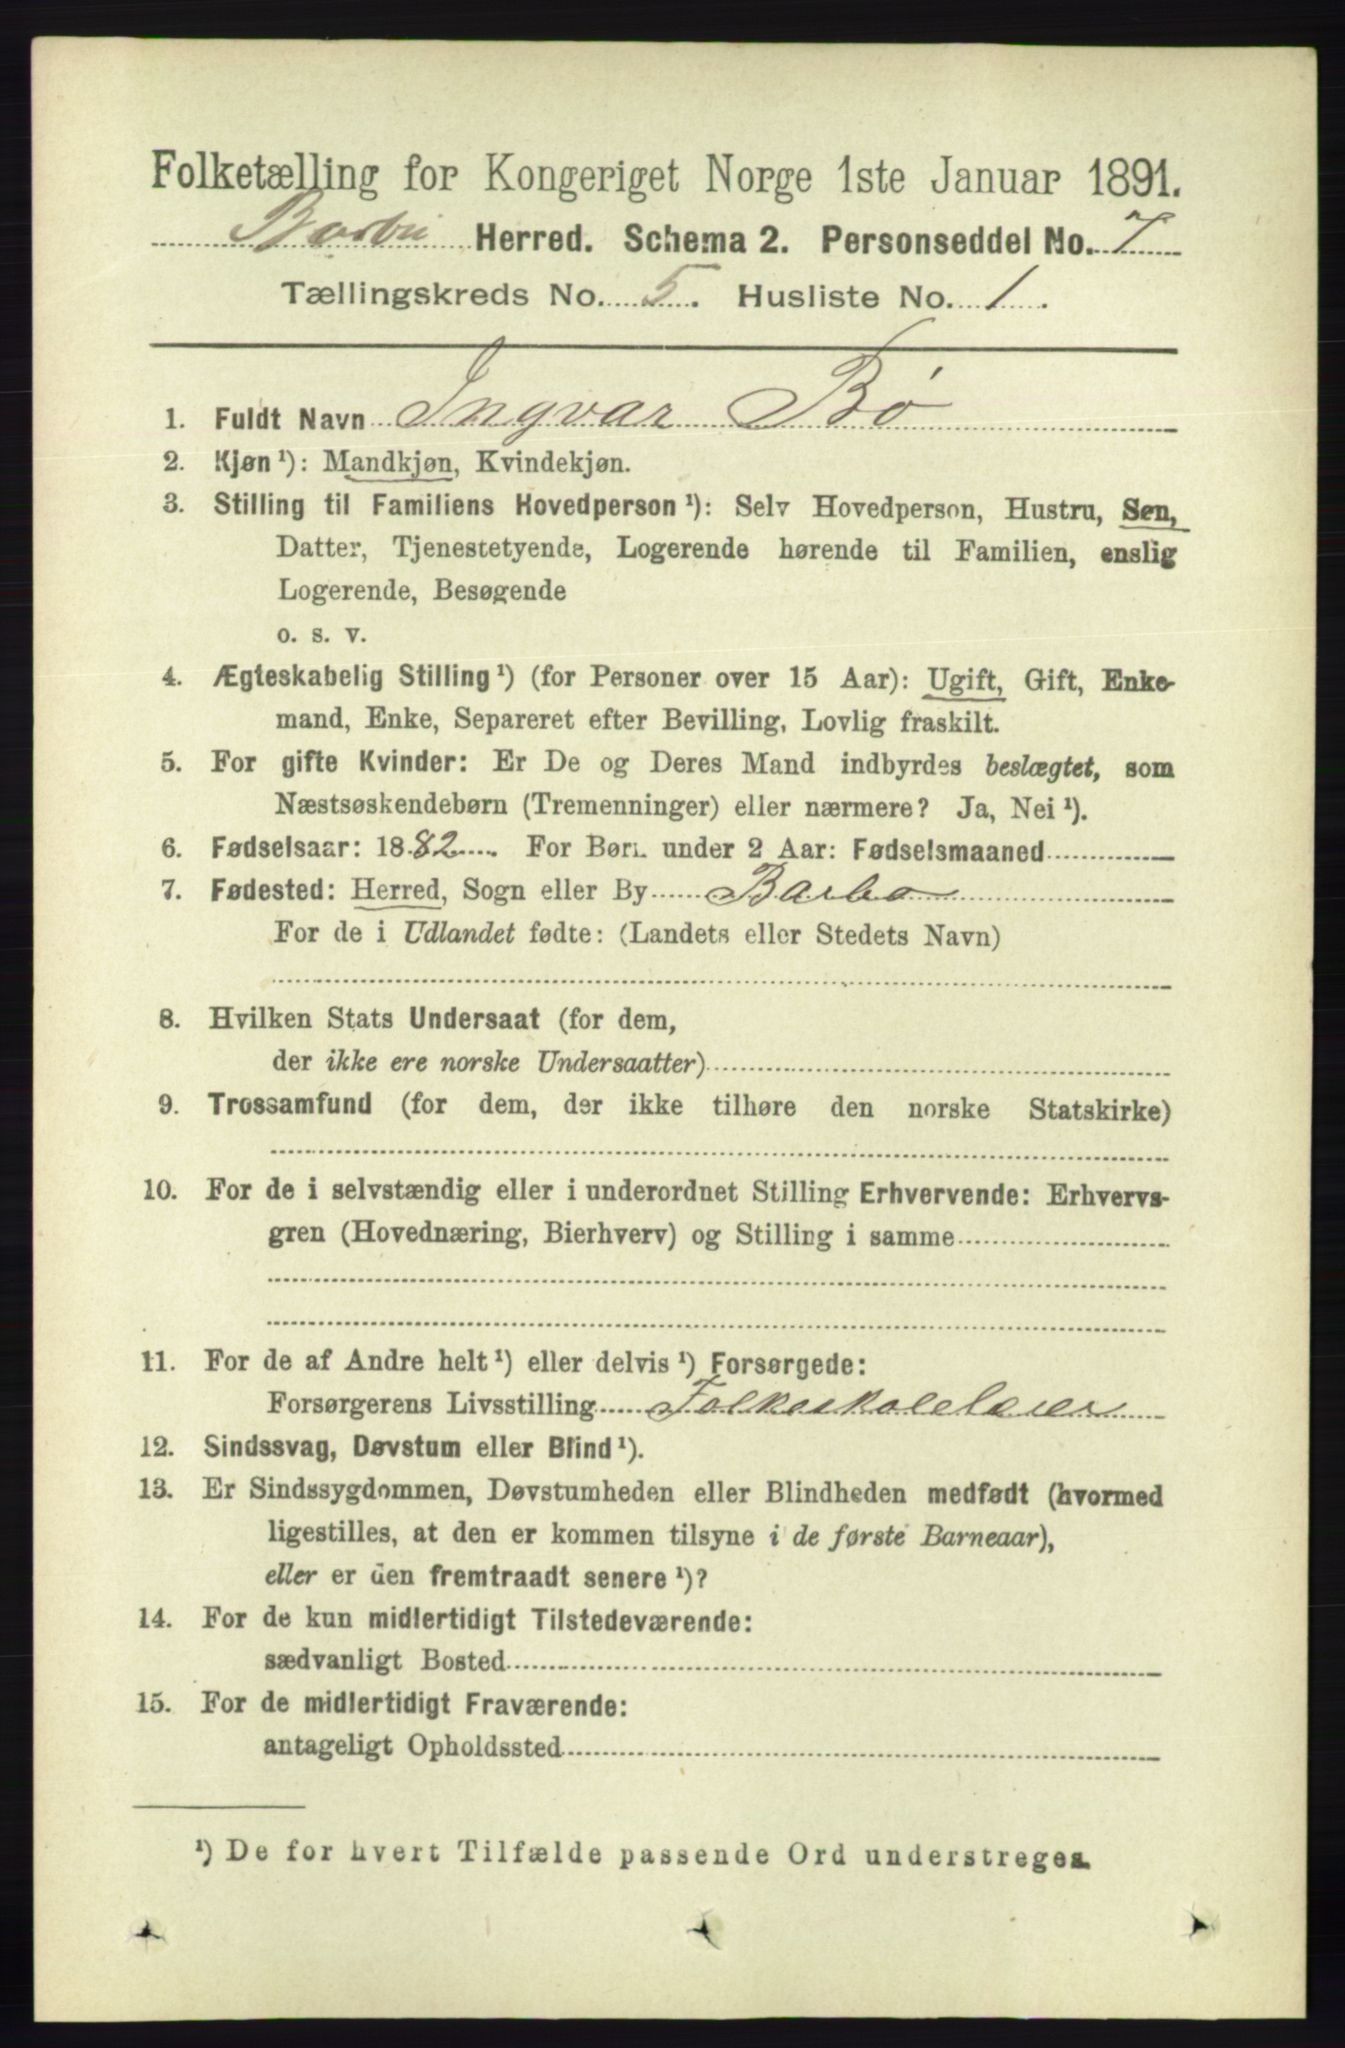 Folketælling for Kongeriget Norge 1ste Januar 1891.
Barbu Herred. Schema 2. Personseddel No. 7
Tællingskreds No. 5. Husliste No. 1.
1. Fuldt Navn Ingvar Bø
2. Kjøn ¹): Mandkjøn, Kvindekjøn.
3. Stilling til Familiens Hovedperson ¹): Selv Hovedperson, Hustru, Søn,
Datter, Tjenestetyende, Logerende hørende til Familien, enslig
Logerende, Besøgende
o. s. v.
4. Ægteskabelig Stilling ¹) (for Personer over 15 Aar): Ugift, Gift, Enke-
mand, Enke, Separeret efter Bevilling, Lovlig fraskilt.
5. For gifte Kvinder: Er De og Deres Mand indbyrdes beslægtet, som
Næstsøskendebørn (Tremenninger) eller nærmere? Ja, Nei ¹).
6. Fødselsaar: 1882. For Børn under 2 Aar: Fødselsmaaned
7. Fødested: Herred, Sogn eller By Barbo
For de i Udlandet fødte: (Landets eller Stedets Navn)
8. Hvilken Stats Undersaat (for dem,
der ikke ere norske Undersaatter)
9. Trossamfund (for dem, der ikke tilhøre den norske Statskirke)
10. For de i selvstændig eller i underordnet Stilling Erhvervende: Erhvervs-
gren (Hovednæring, Bierhverv) og Stilling i samme
11. For de af Andre helt ¹) eller delvis ¹) Forsørgede:
Forsørgerens Livsstilling Folkeskolelærer
12. Sindssvag, Døvstum eller Blind ¹).
13. Er Sindssygdommen, Døvstumheden eller Blindheden medfødt (hvormed
ligestilles, at den er kommen tilsyne i de første Barneaar),
eller er den fremtraadt senere ¹)?
14. For de kun midlertidigt Tilstedeværende:
sædvanligt Bosted
15. For de midlertidigt Fraværende:
antageligt Opholdssted
¹) De for hvert Tilfælde passende Ord understreges.